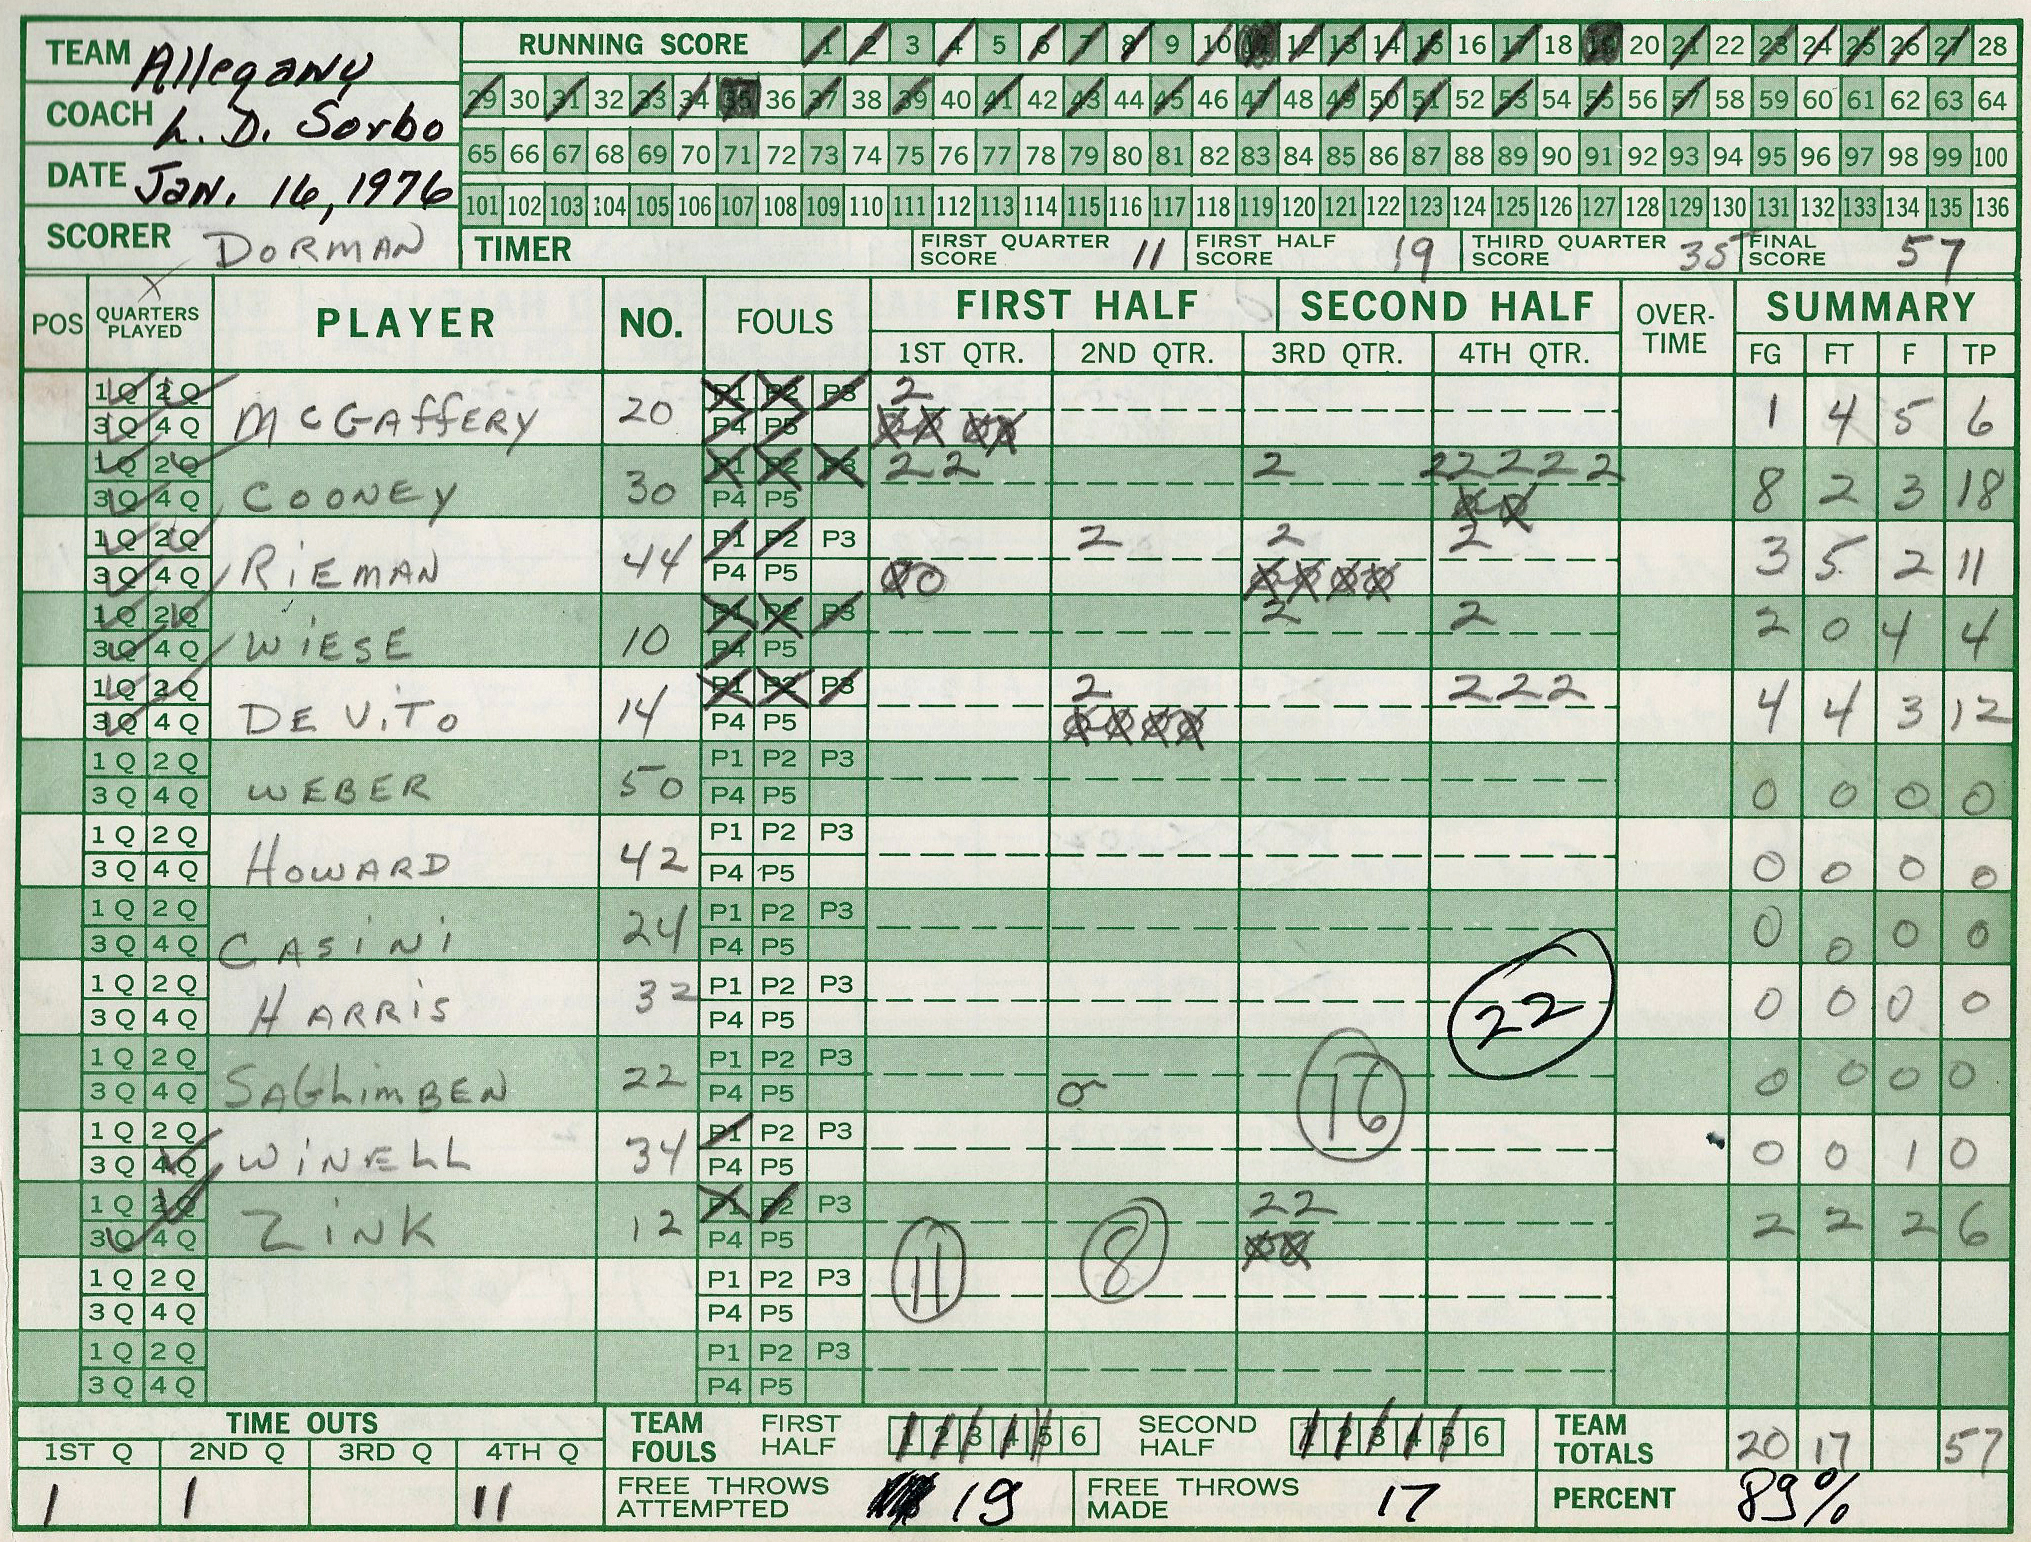 TEAM Allegany
COACH L. D. Sorbo
DATE Jan. 16, 1976
SCORER DORMAN
RUNNING SCORE 1 2 3 4 5 6 7 8 9 10 11 12 13 14 15 16 17 18 19 20 21 22 23 24 25 26 27 28
29 30 31 32 33 34 35 36 37 38 39 40 41 42 43 44 45 46 47 48 49 50 51 52 53 54 55 56 57 58 59 60 61 62 63 64
65 66 67 68 69 70 71 72 73 74 75 76 77 78 79 80 81 82 83 84 85 86 87 88 89 90 91 92 93 94 95 96 97 98 99 100
101 102 103 104 105 106 107 108 109 110 111 112 113 114 115 116 117 118 119 120 121 122 123 124 125 126 127 128 129 130 131 132 133 134 135 136
TIMER FIRST QUARTER SCORE 11 FIRST HALF SCORE 19 THIRD QUARTER SCORE 35 FINAL SCORE 57
POS QUARTERS PLAYED PLAYER NO. FOULS FIRST HALF SECOND HALF OVER-TIME SUMMARY
1ST QTR. 2ND QTR. 3RD QTR. 4TH QTR. FG FT F TP
1 Q 2 Q P1 P2 P3 2
3 Q 4 Q McGAffERY 20 P4 P5 1 4 5 6
1 Q 2 Q P1 P2 P3 2 2 2 2 2 2 2 2
3 Q 4 Q COONEY 30 P4 P5 8 2 3 18
1 Q 2 Q P1 P2 P3 2 2 2
3 Q 4 Q RiEMAN 44 P4 P5 0 3 5 2 11
1 Q 2 Q P1 P2 P3 2 2
3 Q 4 Q WiESE 10 P4 P5 2 0 4 4
1 Q 2 Q P1 P2 P3 2 2 2 2
3 Q 4 Q DE ViTo 14 P4 P5 4 4 3 12
1 Q 2 Q P1 P2 P3
3 Q 4 Q WEBER 50 P4 P5 0 0 0 0
1 Q 2 Q P1 P2 P3
3 Q 4 Q HOWARD 42 P4 P5 0 0 0 0
1 Q 2 Q P1 P2 P3
3 Q 4 Q CASiNi 24 P4 P5 0 0 0 0
1 Q 2 Q P1 P2 P3
3 Q 4 Q HARRiS 32 P4 P5 22 0 0 0 0
1 Q 2 Q P1 P2 P3
3 Q 4 Q SAGhimBEN 22 P4 P5 0 16 0 0 0 0
1 Q 2 Q P1 P2 P3
3 Q 4 Q WiNELL 34 P4 P5 0 0 1 0
1 Q 2 Q P1 P2 P3 2 2
3 Q 4 Q ZiNK 12 P4 P5 11 8 2 2 2 6
1 Q 2 Q P1 P2 P3
3 Q 4 Q P4 P5
1 Q 2 Q P1 P2 P3
3 Q 4 Q P4 P5
TIME OUTS TEAM FOULS FIRST HALF 1 2 3 4 5 6 SECOND HALF 1 2 3 4 5 6 TEAM TOTALS 20 17 57
1ST Q 2ND Q 3RD Q 4TH Q
1 1 11 FREE THROWS ATTEMPTED 19 FREE THROWS MADE 17 PERCENT 89%